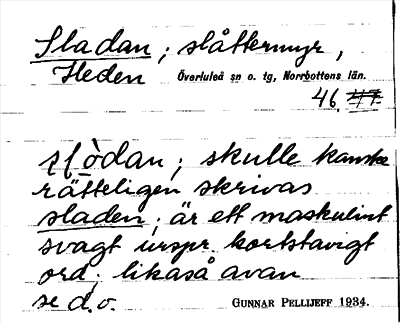 Sladan ; slåttermyr,
Heden Överluleå sn o. tg, Norrbottens län.
46. 47.
slòdan ; skulle kanske
rätteligen skrivas
sladen ; är ett maskulint
svagt urspr. kortstavigt
ord ; likaså avan
se d. o. GUNNAR PELLIJEFF 1934.